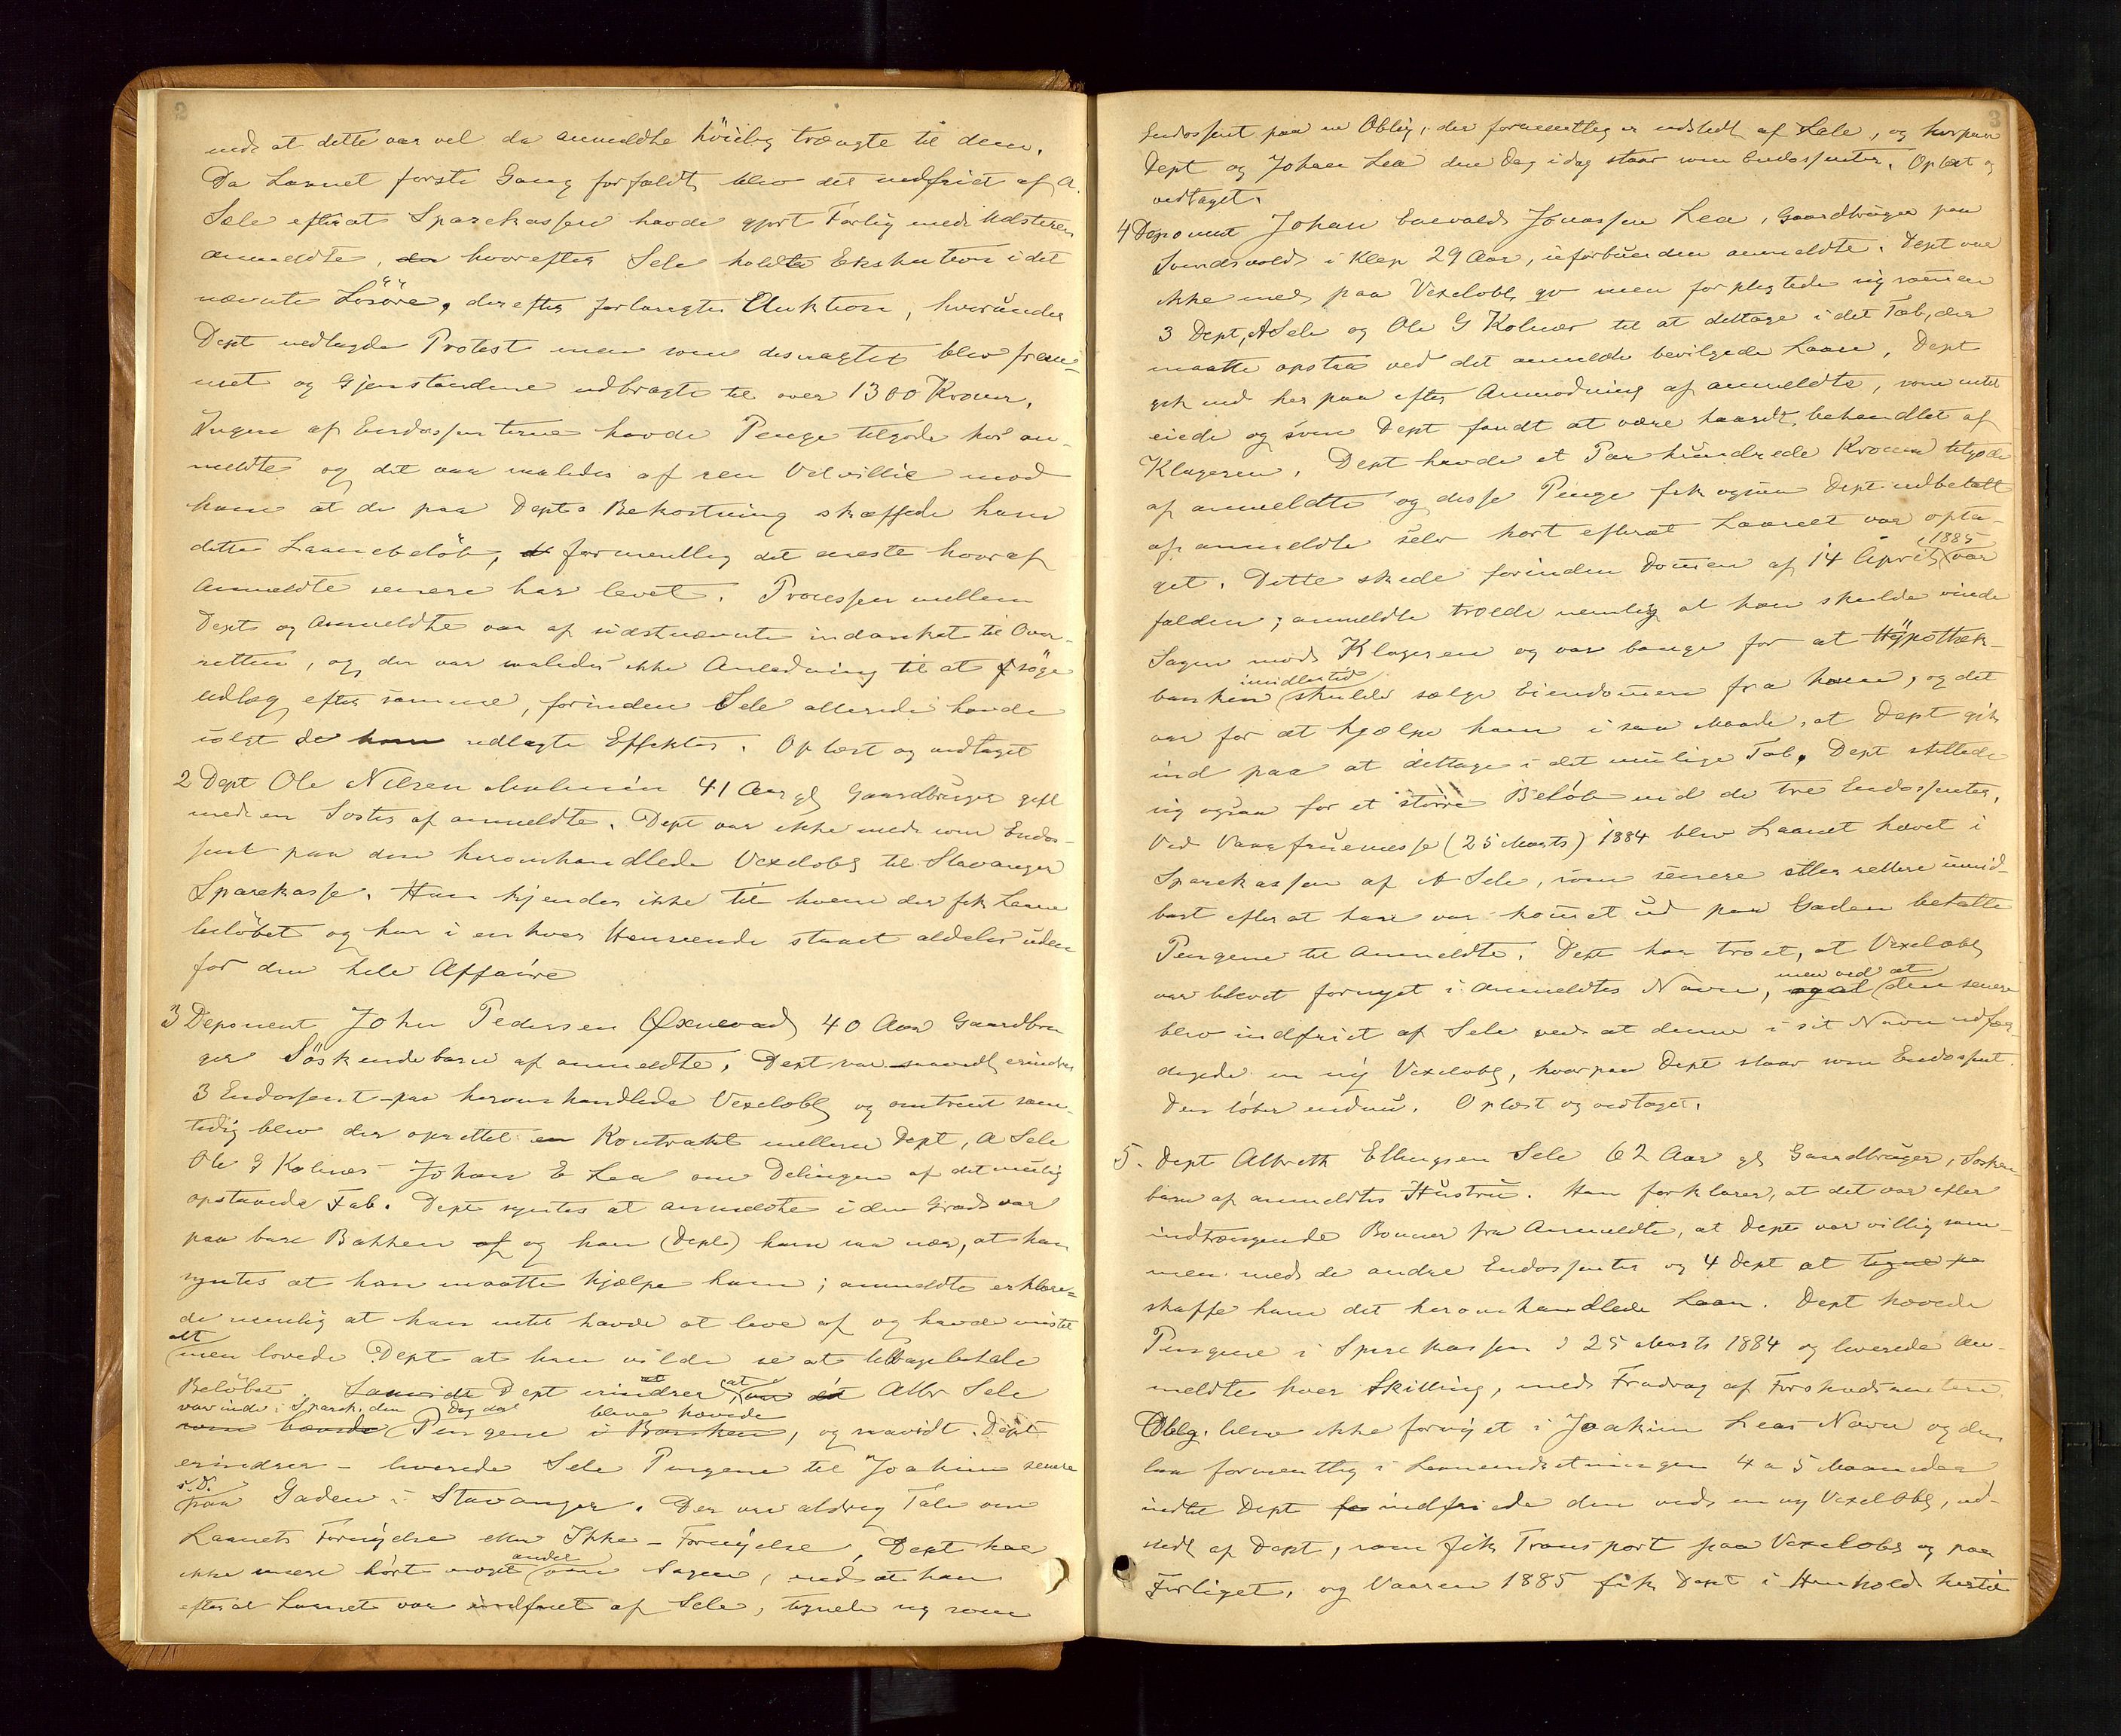 2
med at dette var vel da anmeldte höilig trængte til dem.
Da Laanet første Gang forfaldt, blev det indfriet af A.
Sele efterat Sparekassen havde gjort Forlig med Udstederen
anmeldte, da hvorefter Sele holdte Exekution i det
nævnte Lösöre, derefter forlangtes Auktion, hvorunder
Dept nedlagde Protest men som desuagtet blev frem-
met og Gjenstandene udbragte til over 1300 Kroner.
Ingen af Endossenterne havde Penge tilgode hos an-
meldte og det var saaledes af ren Velvillie mod
ham at de paa Depts Bekostning skaffede ham
dette Laanebelöb, formentlig det eneste hvoraf
Anmeldte senere har levet. Processen mellem
Dept og Anmeldte var af sidstnævnte indanket til Over-
retten, og der var saaledes ikke Anledning til at søge
udlæg efter samme, forinden Sele allerede havde
solgt de ham udlagte Effekter. Oplæst og vedtaget
2 Dept Ole Nilsen Malmin 41 Aar gl Gaardbruger gift
med en Søster af anmeldte. Dept var ikke med som Endos-
sent paa den heromhandlede Vexelobl til Stavanger
Sparekasse. Han kjender ikke til hvem der fik Laane
belöbet og har i enhver Henseende staaet aldeles uden
for den hele Affaire
3 Deponent John Pedersen Øxnevad 40 Aar Gaardbru
ger Söskendebarn af anmeldte. Dept var saavidt erindres
3 Endossent paa heromhandlede Vexelobl og omtrent sam-
tidig blev der oprettet en Kontrakt mellem Dept, A Sele
Ole G Kolnes Johan E Lea om Delingen af det mulig
opstaaede Tab. Dept syntes at anmeldte i den Grad var
paa bare Bakken af og han (Dept) ham saa nær, at han
syntes at han maatte hjælpe ham; anmeldte erklære-
de nemlig at han intet havde at leve af og havde mistet
alt
men lovede Dept at han vilde se at tilbagebetale
Beløbet. Saavidt Dept erindrer at Albr Sele
var inde i Sparek. den Dag da bleve hævede
som hævde Pengene i Banken, og saavidt Dept
erindrer – leverede Sele Pengene til Joakim senere
s.D.
paa Gaden i Stavanger. Der var aldrig Tale om
Laanets Fornyelse eller Ikke-Fornyelse, Dept har
andet
ikke senere hørt noget om Sagen, end at han
efterat Laanet var indfriet af Sele, tegnede sig som
3
Endossent paa en Oblig. der formentlig er udstedt af Sele, og hvorpaa
Dept og Johan Lea den Dag i dag staar som Endossenter. Oplæst og
vedtaget.
4 Deponent Johan Enevald Jonassen Lea, Gaardbruger paa
Svindsvold i Klep 29 Aar, uforbunden anmeldte. Dept var
ikke med paa Vexelobl, men forpligtede sig sammen
3 Dept, A Sele og Ole G Kolnes til at deltage i det Tab, der
maatte opstaa ved det anmeldte bevilgede Laan. Dept
gik ind her paa efter Anmodning af anmeldte, som intet
eiede og som Dept fandt at være haardt behandlet af
Klageren. Dept havde et Par hundrede Kroner tilgode
af anmeldte og disse Penge fik ogsaa Dept udbetalt
af anmeldte selv kort efterat Laanet var opta-
1885
get. Dette skede forinden Dommen af 14 April var
falden; anmeldte troede nemlig at han skulde vinde
Sagen mod Klageren og var bange for at Hypothek-
imidlertid
banken skulde sælge Eiendommen fra ham, og det
var for at hjælpe ham i saa Maade, at Dept gik
ind paa at deltage i det mulige Tab. Dept stillede
sig ogsaa for et större Belöb end de tre Endossenter.
Ved Vaarfruemesse (25 Marts) 1884 blev Laanet hævet i
Sparekassen af A Sele, som senere eller rettere umid-
bart efter at han var kommet ud paa Gaden betalte
Pengene til Anmeldte. Dept har troet, at Vexelobl
men ved at
var blevet fornyet i Anmeldtes Navn, og at den senere
blev indfriet af Sele ved at denne i sit Navn udfær-
digede en ny Vexelobl, hvorpaa Dept staar som Endossent.
Den löber endnu. Oplæst og vedtaget.
5. Dept Albreth Ellingsen Sele 62 Aar gl Gaardbruger, Søsken-
barn af anmeldtes Hustru. Han forklarer, at det var efter
indtrængende Bønner fra Anmeldte, at Dept var villig sam-
men med de andre Endossenter og 4 Dept at tegne pa
skaffe ham det heromhandlede Laan. Dept hævede
Pengene i Sparekassen d 25 Marts 1884 og leverede An-
meldte hver Skilling, med Fradrag af Forskudsrenten.
Oblg. blev ikke fornyet i Joakim Leas Navn og den
laa formentlig i Laaneindretningen 4 a 5 Maaneder
indtil Dept fo indfriede den ved en ny Vexelobl, ud-
stedt af Dept, som fik Transport paa Vexelobl og paa
Forliget, og Vaaren 1885 fik Dept i Henhold hertil